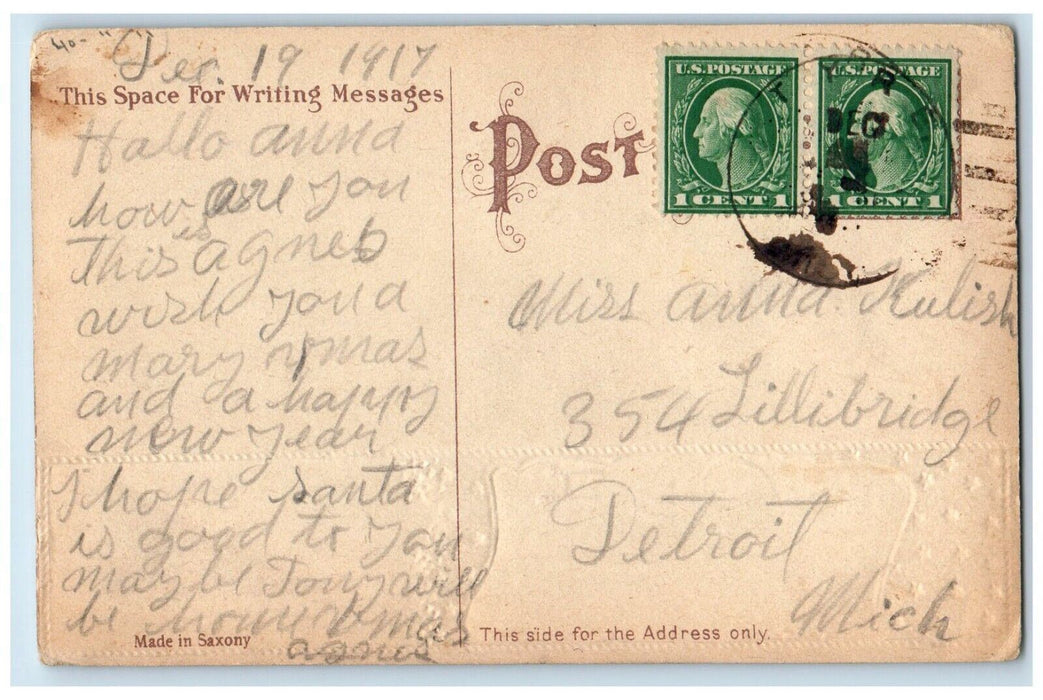 Dec. 19 1917
This Space For Writing Messages
Hallo anna
how are you
This is agnes
wish you a
mary xmas
and a happy
new year
I hope santa
is good to you
may be Tony will
be home xmas
agnes
Made in Saxony
POST
U.S. POSTAGE
1 CENT 1
U.S. POSTAGE
1 CENT 1
DEC
Miss anna Kulish
354 Lillibridge
Detroit
Mich
This side for the Address only.